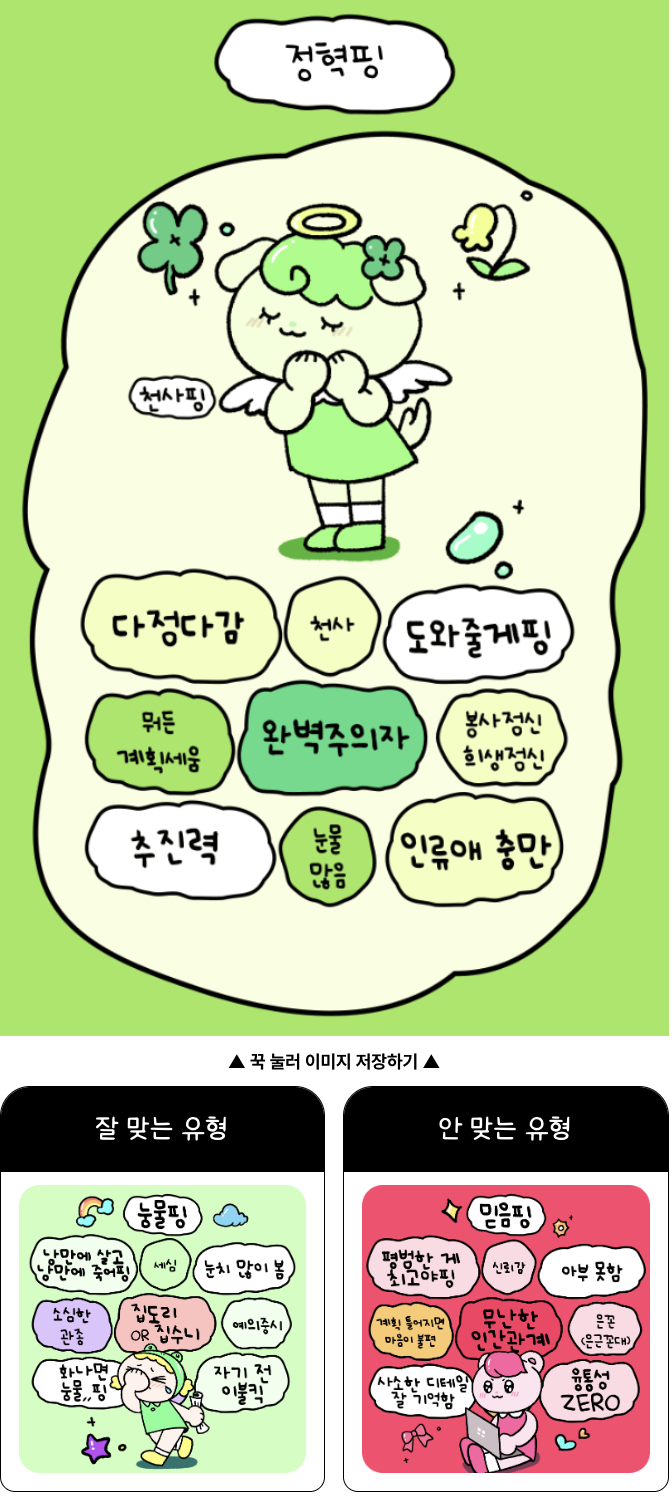 정혁핑
천사핑
다정다감
천사
도와줄게핑
뭐든
계획세움
완벽주의자
봉사정신
희생정신
추진력
눈물
많음
인류애 충만
▲ 꾹 눌러 이미지 저장하기 ▲
잘 맞는 유형
눙물핑
낭만에 살고
낭만에 죽어핑
세심
눈치 많이 봄
소심한
관종
집돌이
OR 집수니
예의중시
화나면
눙물,,핑
자기 전
이불킥
안 맞는 유형
믿음핑
평범한 게
최고야핑
신뢰감
아부 못함
계획 틀어지면
마음이 불편
무난한
인간관계
은꼰
(은근꼰대)
사소한 디테일
잘 기억함
융통성
ZERO